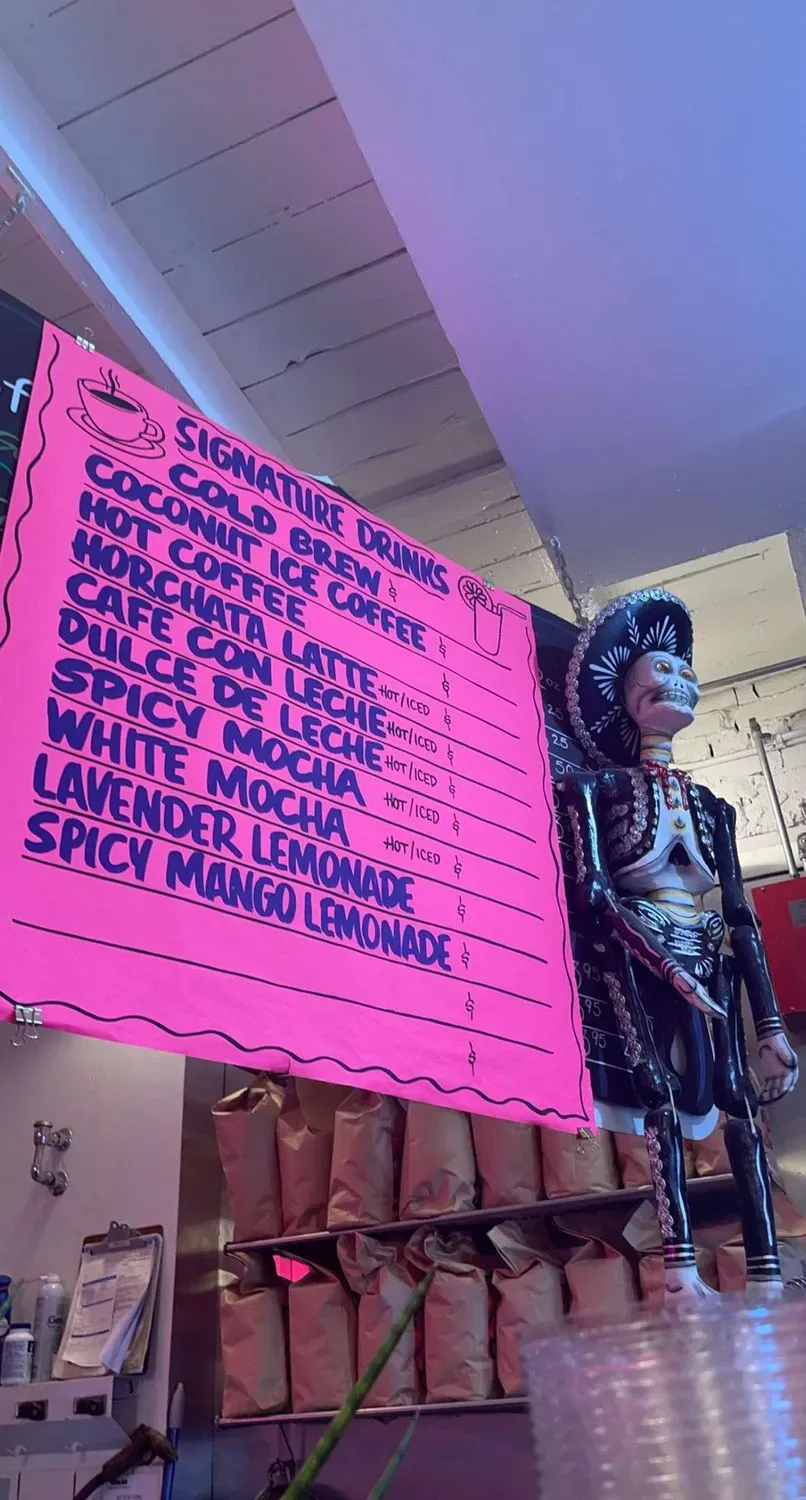 SIGNATURE DRINKS
COLD BREW $
COCONUT ICE COFFEE $
HOT COFFEE $
HORCHATA LATTE HOT/ICED $
CAFE CON LECHE HOT/ICED $
DULCE DE LECHE HOT/ICED $
SPICY MOCHA HOT/ICED $
WHITE MOCHA HOT/ICED $
LAVENDER LEMONADE $
SPICY MANGO LEMONADE $
$
$